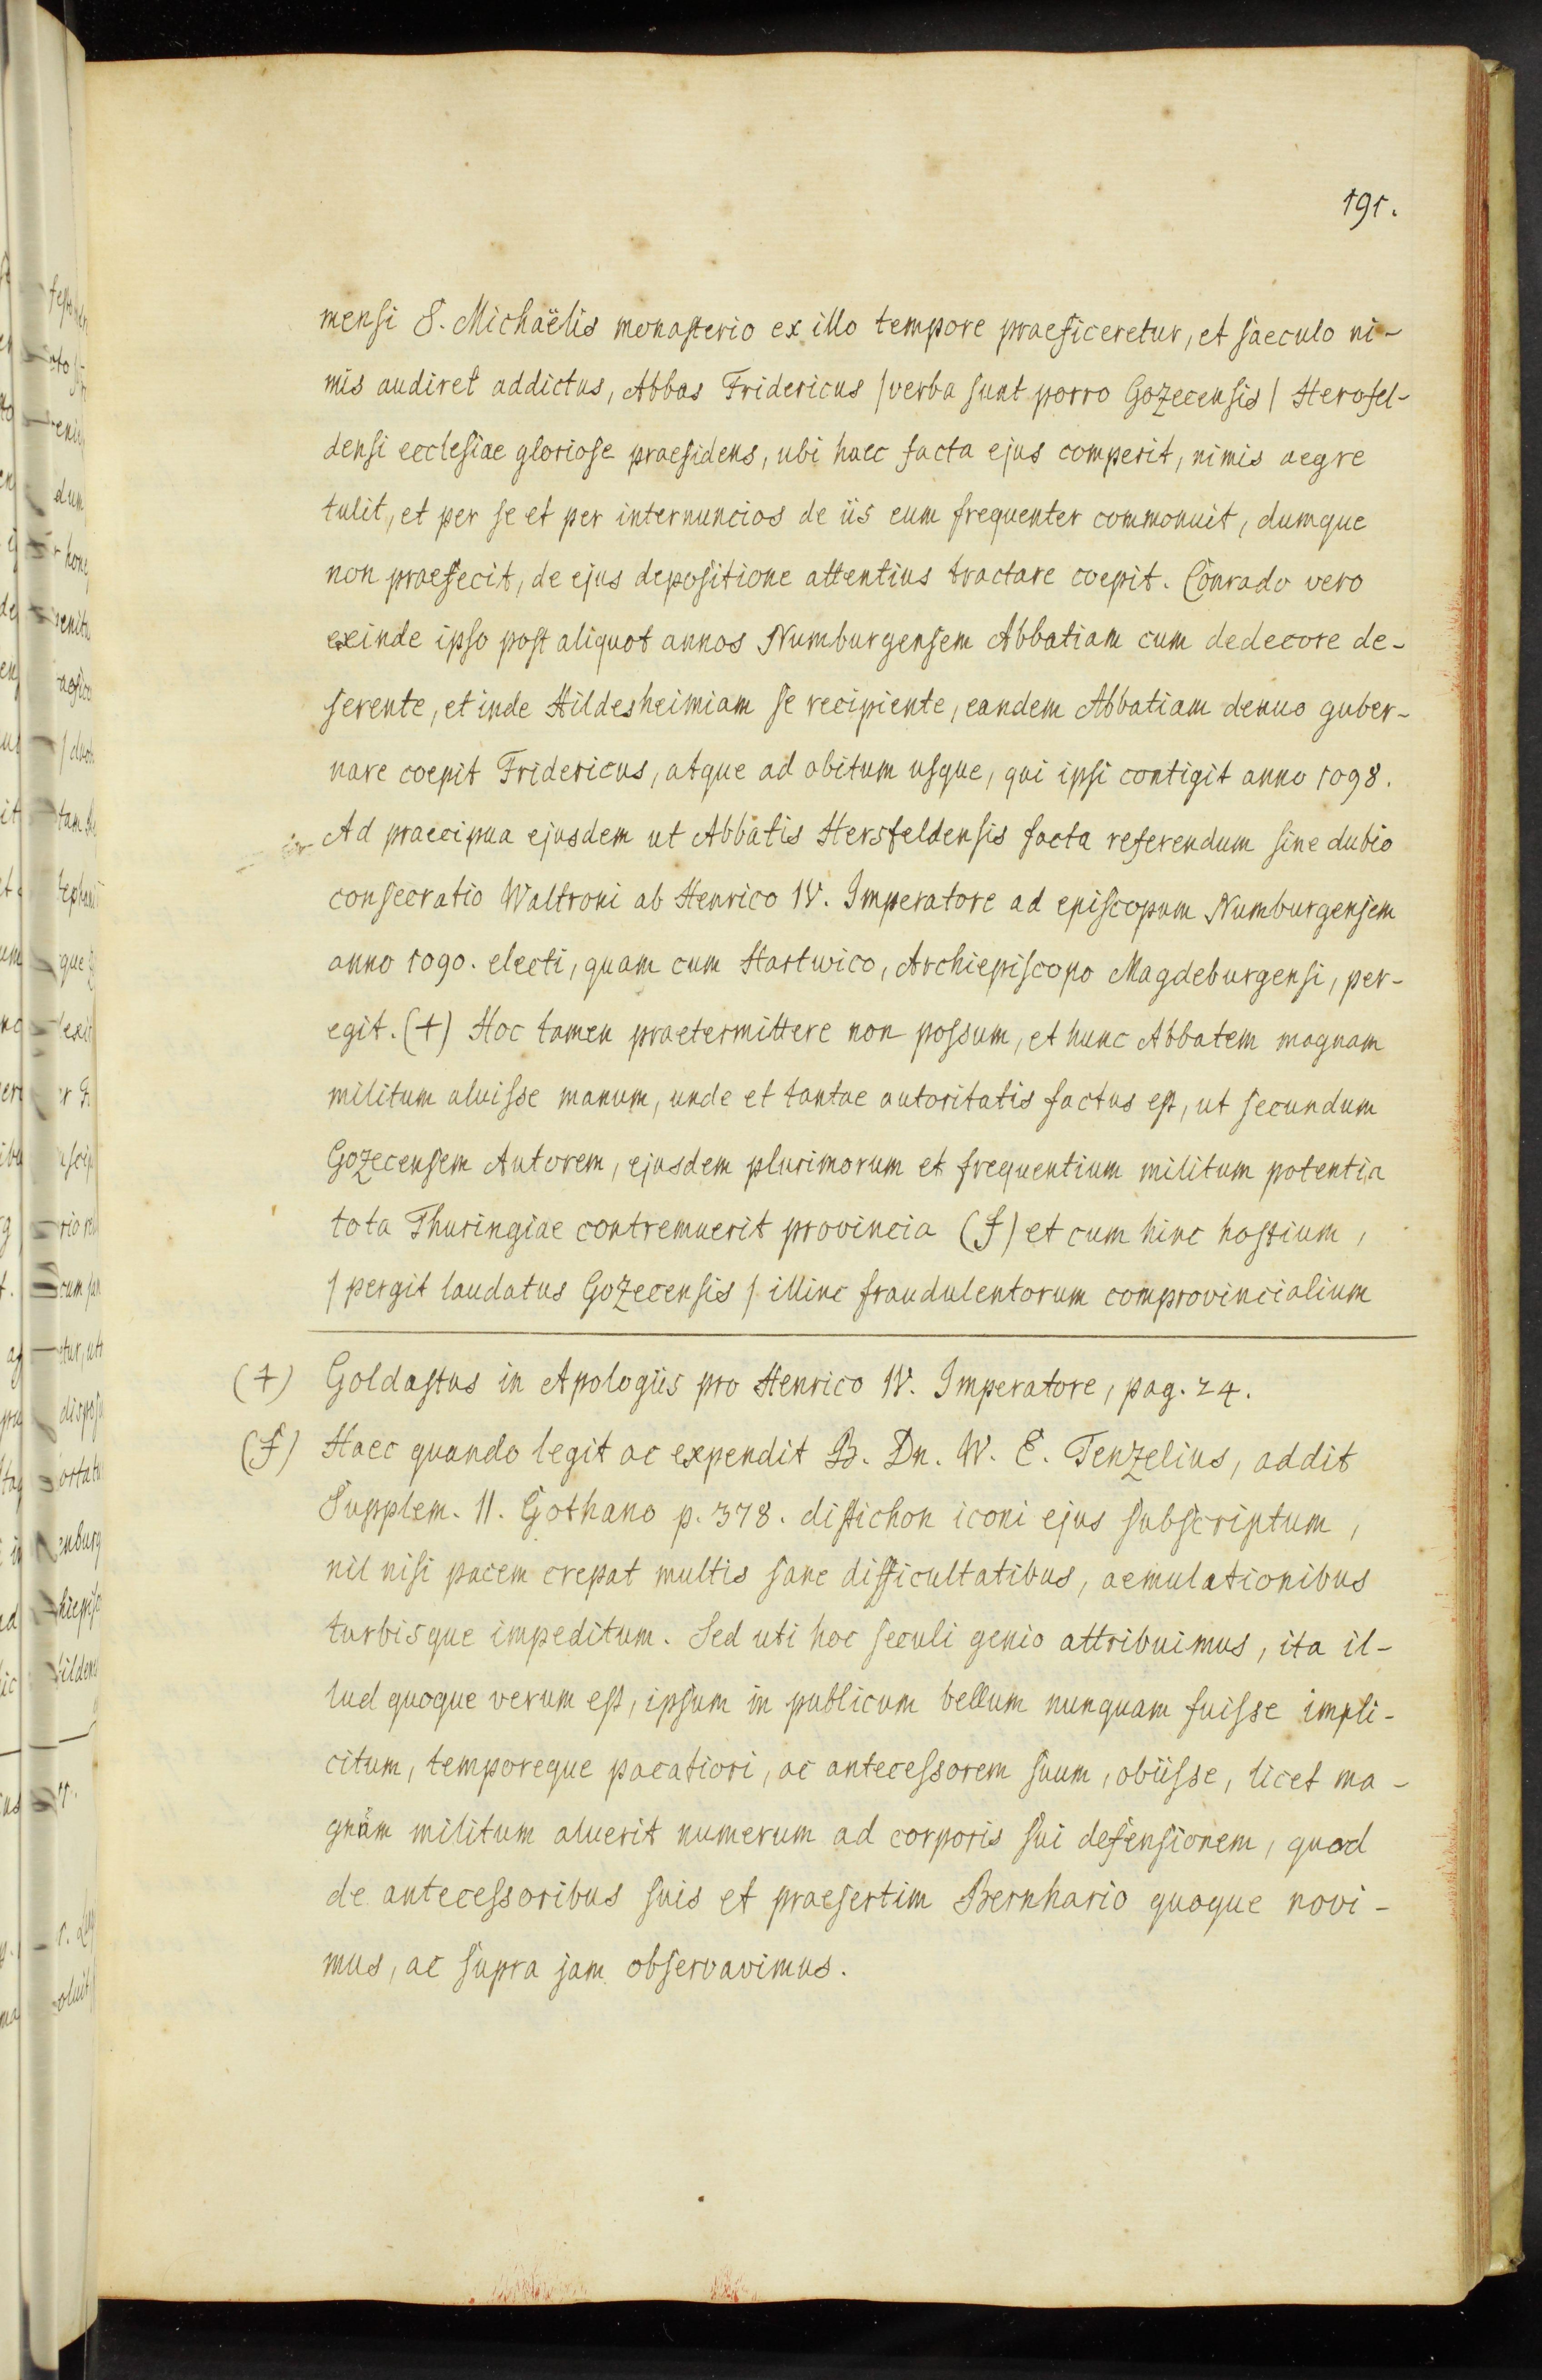 191.
mensi S. Michaëlis monasterio ex illo tempore praeficeretur, et saeculo ni-
mis audiret addictus, Abbas Fridericus /verba sunt porro Gozecensis/ Herofel-
densi ecclesiae gloriose praesidens, ubi haec facta ejus comperit, nimis aegre
tulit, et per se et per internuncios de iis eum frequenter commonuit, dumque
non praefecit, de ejus depositione attentius tractare coepit. Conrado vero
exinde ipso post aliquot annos Numburgensem Abbatiam cum dedecore de-
serente, et inde Hildesheimiam se recipiente, eandem Abbatiam denuo guber-
nare coepit Fridericus, atque ad obitum usque, qui ipsi contigit anno 1098.
Ad praecipua ejusdem ut Abbatis Hersfeldensis facta referendum sine dubio
consecratio Waltroni ab Henrico IV. Imperatore ad episcopum Numburgensem
anno 1090. electi, quam cum Hartwico, Archiepiscopo Magdeburgensi, per-
egit. (+) Hoc tamen praetermittere non possum, et hunc Abbatem magnam
militum aluisse manum, unde et tantae autoritatis factus est, ut secundum
Gozecensem Autorem, ejusdem plurimorum et frequentium militum potentia
tota Thuringiae contremuerit provincia (Ɨ) et cum hinc hostium,
/pergit laudatus Gozecensis/ illinc fraudulentorum comprovincialium
(+) Goldastus in Apologiis pro Henrico IV. Imperatore, pag. 24.
(Ɨ) Haec quando legit ac expendit B. Dn. W. E. Tenzelius, addit
Supplem. II. Gothano p. 378. distichon iconi ejus subscriptum,
nil nisi pacem crepat multis sane difficultatibus, aemulationibus
turbisque impeditum. Sed uti hoc seculi genio attribuimus, ita il-
lud quoque verum est, ipsum in publicum bellum nunquam fuisse impli-
citum, temporeque pacatiori, ac antecessorem suum, obiisse, licet ma-
gnum militum aluerit numerum ad corporis sui defensionem, quod
de antecessoribus suis et praesertim Bernhario quoque novi-
mus, ac supra jam observavimus.